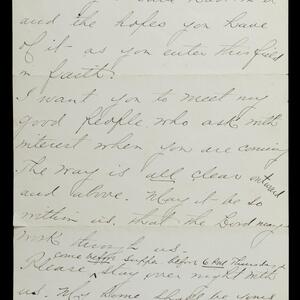 and the hopes you have
of it - as you enter this field
in faith.
I want you to meet my
good people who ask with
interest when you are coming
The way is all clear outward
and above. May it be so
within us, that the Lord may
work through us.
come before supper before 6 Thursday
Please stay over night with
us. My home